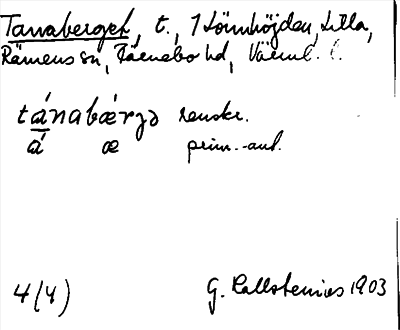 Tanaberget, t., 1 Lönnhöjden, Lilla,
Rämens sn, Färnebo hd, Värml. l.
tánabǽrgə renskr.
á æ prim.-aut.
4(4) G. Kallstenius 1903